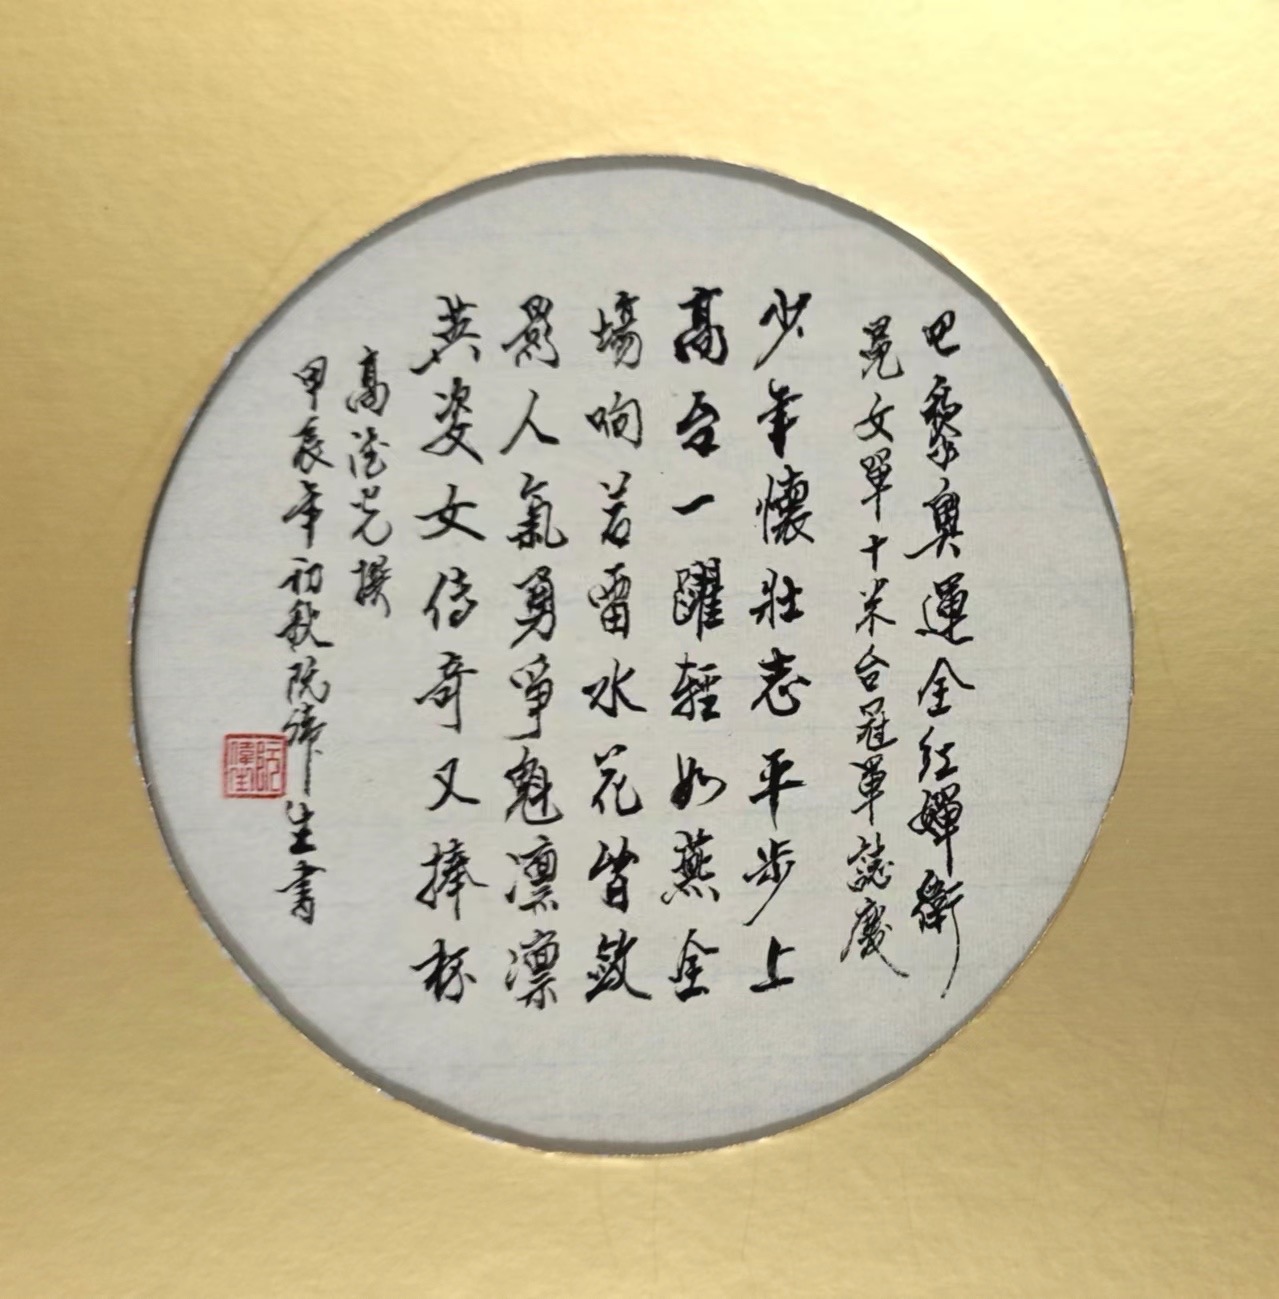 巴黎奧運全紅嬋衛
冕女單十米台冠軍誌慶
少年懷壯志平步上
高台一躍輕如燕全
場呴若雷水花皆斂
影人氣勇爭魁凛凛
英姿女傳奇又捧杯
高澄光撰
甲辰年初秋阮偉生書
阮偉生